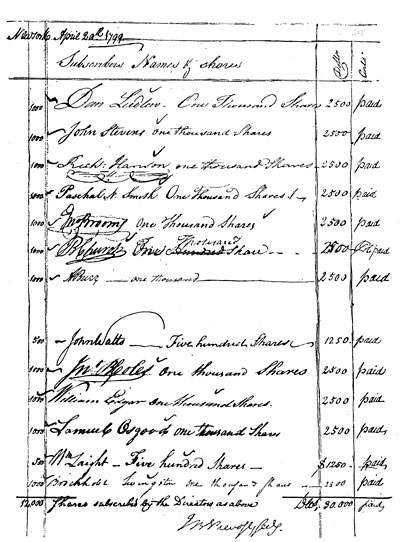 New York April 22d. 1799
Subscribers Names of shares Dolls Cents
1000 Dan Ludlow - One Thousand Shares 2500 paid
1000 John Stevens one thousand Shares 2500 paid
1000 one thousand Shares 2500 paid
1000 Paschal N. Smith One Thousand Shares 2500 paid
1000 Jno Broome One Thousand Shares 2500 paid
1000 J B Church One Thousand Share 2500 paid
1000 A Burr one thousand 2500 paid
500 John Watts Five hundred Shares 1250 paid
1000 Jno. B Coles One thousand Shares 2500 paid
1000 William Edgar one thousand Shares. 2500 paid
1000 Samuel Osgood one thousand Shares 2500 paid
500 Wm Laight - Five hundred Shares - $1250 - paid
1000 Brockholst Livingston one thousand Shares 2500 paid
12,000 Shares subscribed by the Directors as above Dlls. 30.000 paid